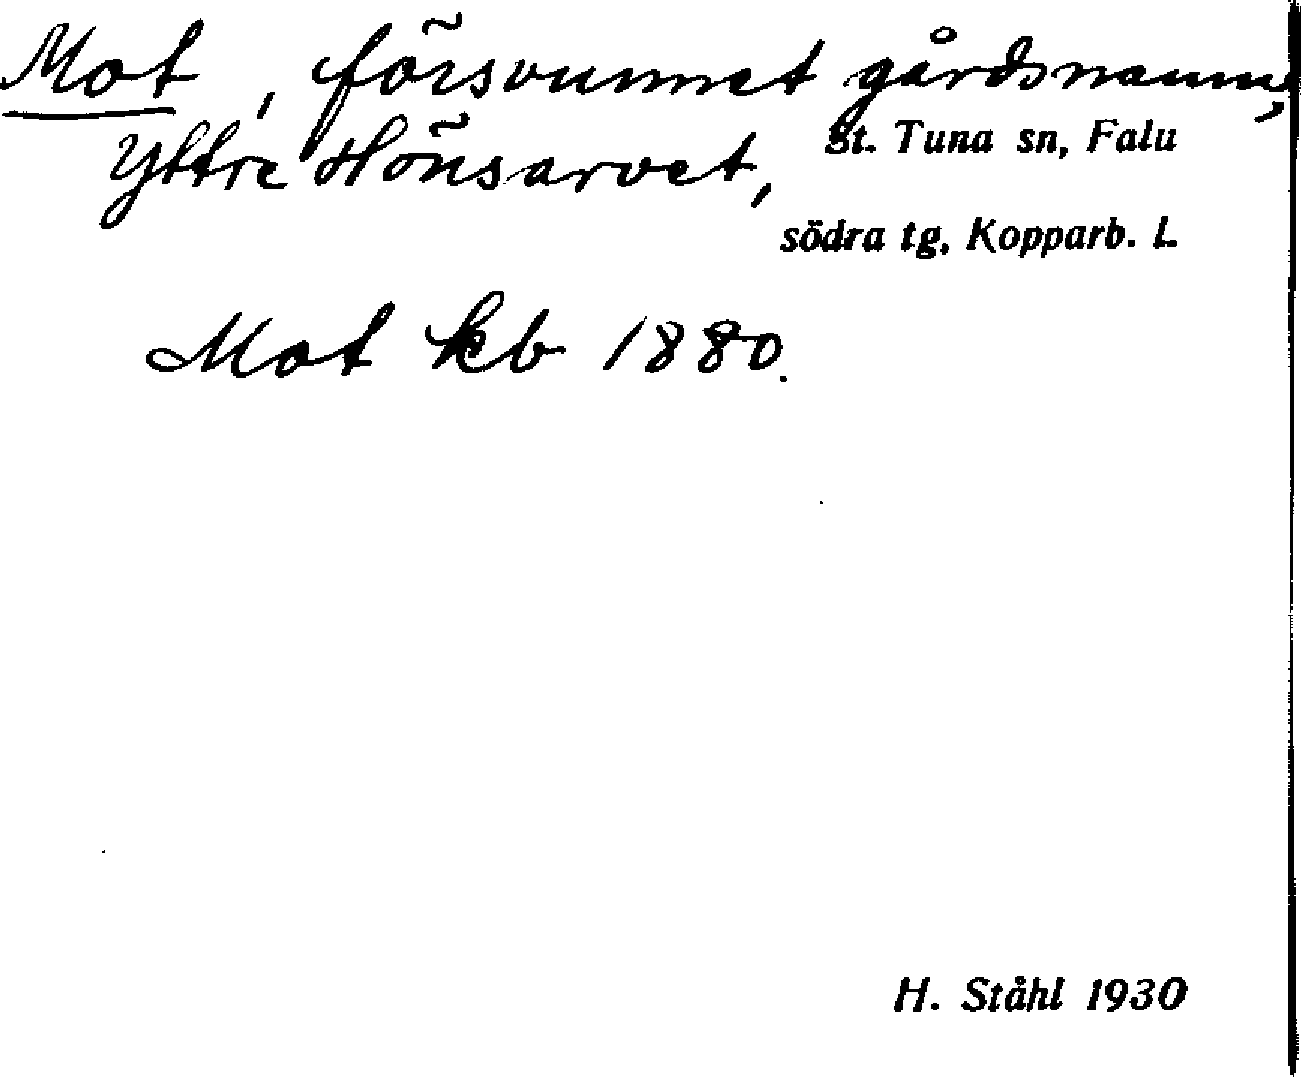 Mot, försvunnet gårdsnamn,
Yttre Hönsarvet,
St. Tuna sn, Falu
södra tg, Kopparb. L.
Mot kb 1880.
H. Ståhl 1930